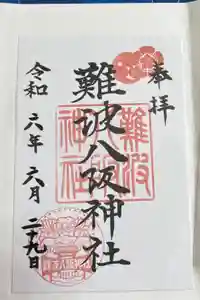 奉拝
難波八阪神社
難波八阪神社
令和六年六月二十九日